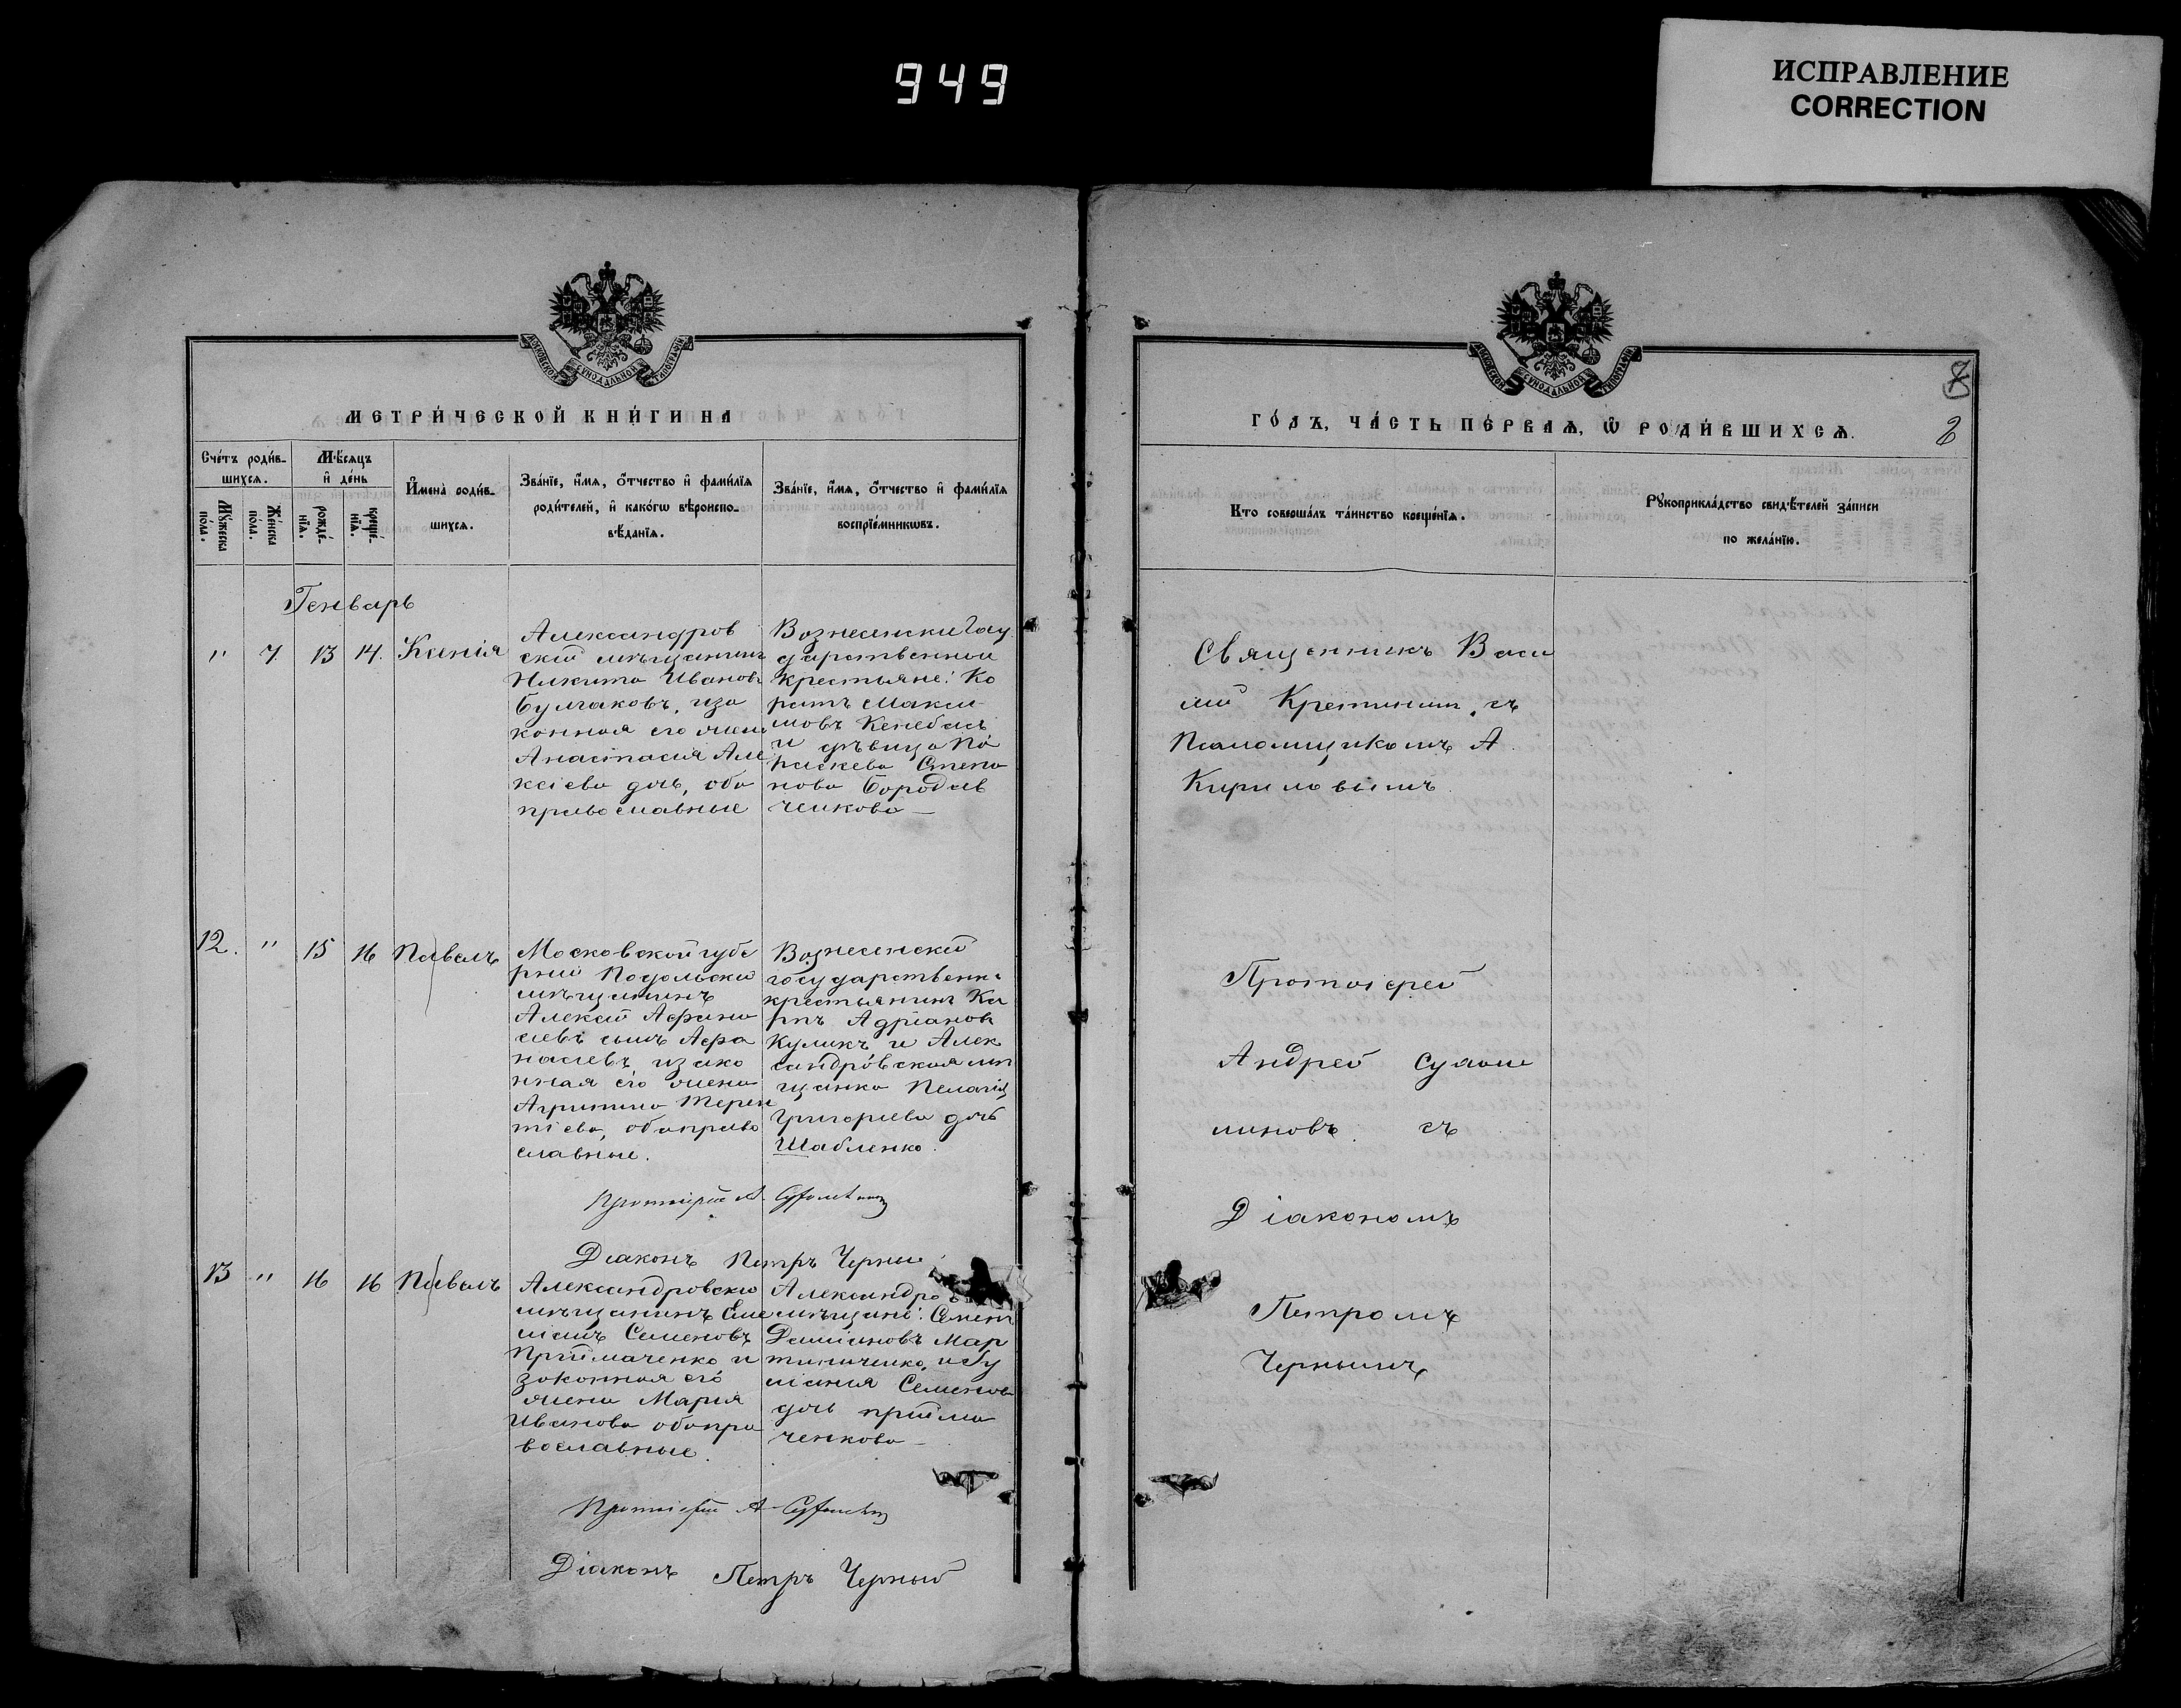 949
ИСПРАВЛЕНИЕ
CORRECTION
МОСКОВСКОЙ СУНОДАЛЬНОЙ ТИПОГРАФІИ
МЕТРИ́ЧЕСКОЙ КНИ́ГИ НА
Сче́тъ роди́в-
шихсѧ.
Мꙋ́жеска
по́ла.
Же́нска
по́ла.
Мѣ́сѧцъ
и҆ де́нь
рожде́-
нїѧ.
креще́-
нїѧ.
И҆мена̀ роди́в-
шихсѧ.
Зва́нїе, и҆́мѧ, ѻ҆́тчество и҆ фами́лїѧ
роди́телей, и҆ како́гѡ вѣ́роиспо-
вѣ́данїѧ.
Зва́нїе, и҆́мѧ, ѻ҆́тчество и҆ фами́лїѧ
воспрїе́мникѡвъ.
Генварь
" 7. 13 14. Ксенія
Александров
скій мѣщанинъ
Никита Ивановъ
Булгаковъ, иза
конная его жена
Анастасія Але
ксіева дочь, оба
православные
Вознесенски Госу
дарственныи
крестьяне: Ко
ратъ Макси
мовъ
и дѣвица Па
раскева Степа
нова Бородав
ченкова —
12. " 15 16 Павелъ
Московской губе
рніи Подольскій
мѣщанинъ
Алексій Афана
сіевъ сынъ Афа
насіевъ, изако
нная его жена
Агрипина Терен
тіева, оба право
славные.
Вознесенскій
государственн.
крестьянинъ Ка
рпъ Адріановъ
Куликъ и Алек
сандровская мѣ
щанка Пелагія
Григорьева дочь
Шабленко.
Протоіерей А.
Діаконъ Петръ Черный
13 " 16 16 Павелъ
Александровскій
мѣщанинъ Еме
ліанъ Семеновъ
Пріймаченко и
законная его
жена Марія
Иванова оба пра
вославные.
Александро
мѣщане: Семенъ
Даміановъ Мар
тиниченко, и Іу
ліанія Семенова
дочь прійма
ченкова —
Протоіерей А.
Діаконъ Петръ Черный
МОСКОВСКОЙ СУНОДАЛЬНОЙ ТИПОГРАФІИ
ГО́ДЪ, ЧА́СТЬ ПЕ́РВАѦ, Ѡ҆ РОДИ́ВШИХСѦ.
8
Кто̀ соверша́лъ та́инство креще́нїѧ.
Рꙋкоприкла́дство свидѣ́телей за́писи
по жела́нїю.
Священникъ Васи
лій Кретинин, съ
Псаломщикомъ А.
Кириловымъ
Протоіерей
Андрей Сулоше
линовъ съ
Діакономъ
Петромъ
Чернымъ